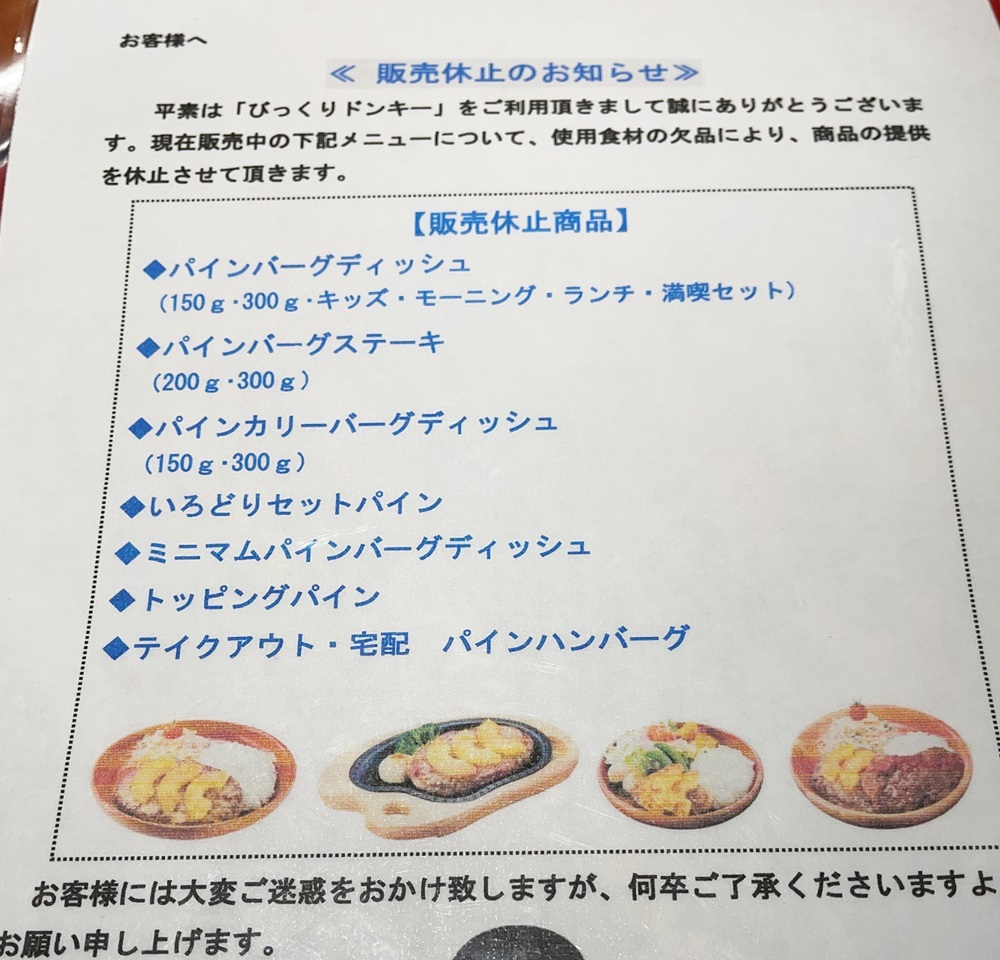 お客様へ
≪ 販売休止のお知らせ≫
平素は「びっくりドンキー」をご利用頂きまして誠にありがとうございま
す。現在販売中の下記メニューについて、使用食材の欠品により、商品の提供
を休止させて頂きます。
【販売休止商品】
◆パインバーグディッシュ
（150ｇ・300ｇ・キッズ・モーニング・ランチ・満喫セット）
◆パインバーグステーキ
（200ｇ・300ｇ）
◆パインカリーバーグディッシュ
（150ｇ・300ｇ）
◆いろどりセットパイン
◆ミニマムパインバーグディッシュ
◆トッピングパイン
◆テイクアウト・宅配　パインハンバーグ
お客様には大変ご迷惑をおかけ致しますが、何卒ご了承くださいますよ
お願い申し上げます。